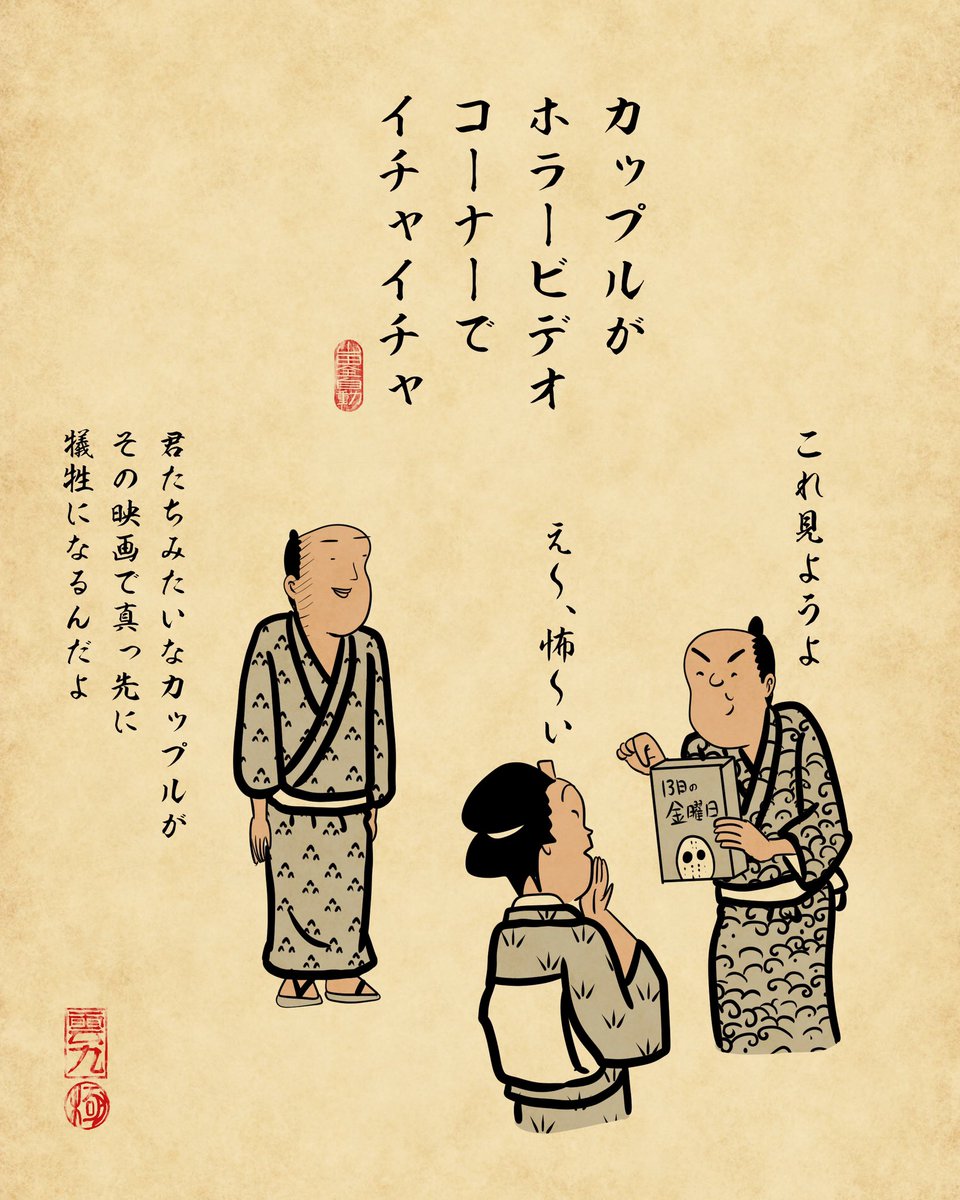 カップルが
ホラービデオ
コーナーで
イチャイチャ
これ見ようよ
え〜、怖〜い
13日の
金曜日
君たちみたいなカップルが
その映画で真っ先に
犠牲になるんだよ